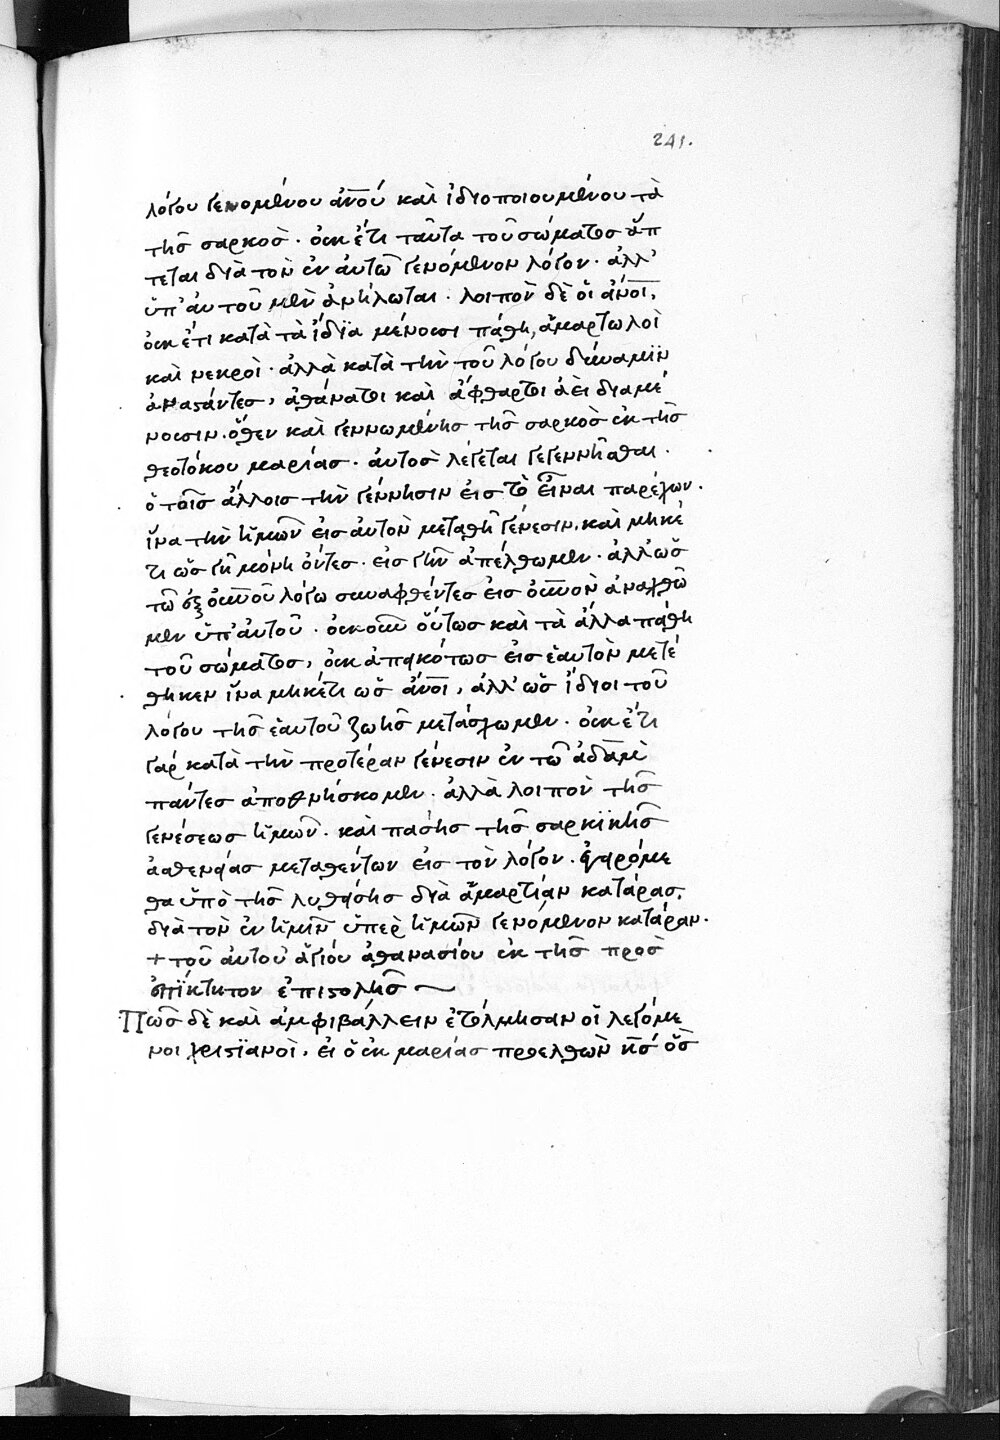 241.
λόγου γενομένου ἀνού καὶ ἰδιοποιουμένου τὰ
τῆς σαρκὸς · οὐκ ἔτι ταῦτα τοῦ σώματος ἅπ
τεται διὰ τὸν ἐν ἀυτῶ γενόμενον λόγον · ἀλλ'
ὑπ' ἀυτοῦ μὲν ἀνήλωται · λοιπὸν δὲ ὅι ἄνοι,
ὀυκ ἔτι κατὰ τὰ ἴδϊα μένουσι πάθη, ἁμαρτωλοὶ
καὶ νεκροὶ · ἀλλὰ κατὰ τὴν τοῦ λόγου δύναμϊν
ἀναστάντες, ἀθάνατοι καὶ ἄφθαρτοι ἀὲι διαμέ
νουσιν. ὅθεν καὶ γεννωμένης τῆς σαρκὸς ἐκ τῆς
θεοτόκου μαρίας · ἀυτὸς λέγεται γεγεννῆσθαι ·
ὁ τοῖς ἄλλοις τὴν γέννησιν ἐις τὸ ἐῖναι παρέχων ·
ἵνα τὴν ἡμῶν ἐις ἀυτὸν μεταθῆ γένεσιν. καὶ μηκέ
τι ὡς γῆ μόνη ὄντες · ἐις γῆν ἀπέλθωμεν · ἀλλ' ὡς
τῶ ἐξ ὀυνοῦ λόγω συναφθέντες ἐις ὀυνοὺς ἀναχθῶ
μεν ὑπ' ἀυτοῦ · ὀυκοῦν ὅυτως καὶ τὰ ἄλλα πάθη
τοῦ σώματος, ὀυκ ἀπεικότως ἐις ἑαυτὸν μετέ
θηκεν ἵνα μηκέτι ὡς ἄνοι, ἀλλ' ὡς ἴδιοι τοῦ
λόγου τῆς ἑαυτοῦ ζωῆς μετάσχωμεν · ὀυκ ἔτι
γάρ κατὰ τὴν προτέραν γένεσιν ἐν τῶ ἀδὰμ
πάντες ἀποθνήσκομεν · ἀλλὰ λοιπὸν τῆς
γενέσεως ἡμῶν · καὶ πάσης τῆς σαρκϊκῆς
ἀσθενείας μεταθέντων ἐις τὸν λόγον · ἐγειρόμε
θα ὑπὸ τῆς λυθείσης διὰ ἁμαρτίαν κατάρας.
διὰ τὸν ἐν ἡμῖν ὑπὲρ ἡμῶν γενόμενον κατάραν ·
+ τοῦ ἀυτοῦ ἁγίου ἀθανασίου ἐκ τῆς πρὸς
ἐπίκτητον ἐπιστολῆς
Πῶς δὲ καὶ ἀμφιβάλλειν ἐτόλμησαν ὅι λεγόμε
νοι χριστϊανοὶ, ἐι ὁ ἐκ μαρίας προελθὼν κς, ὅς